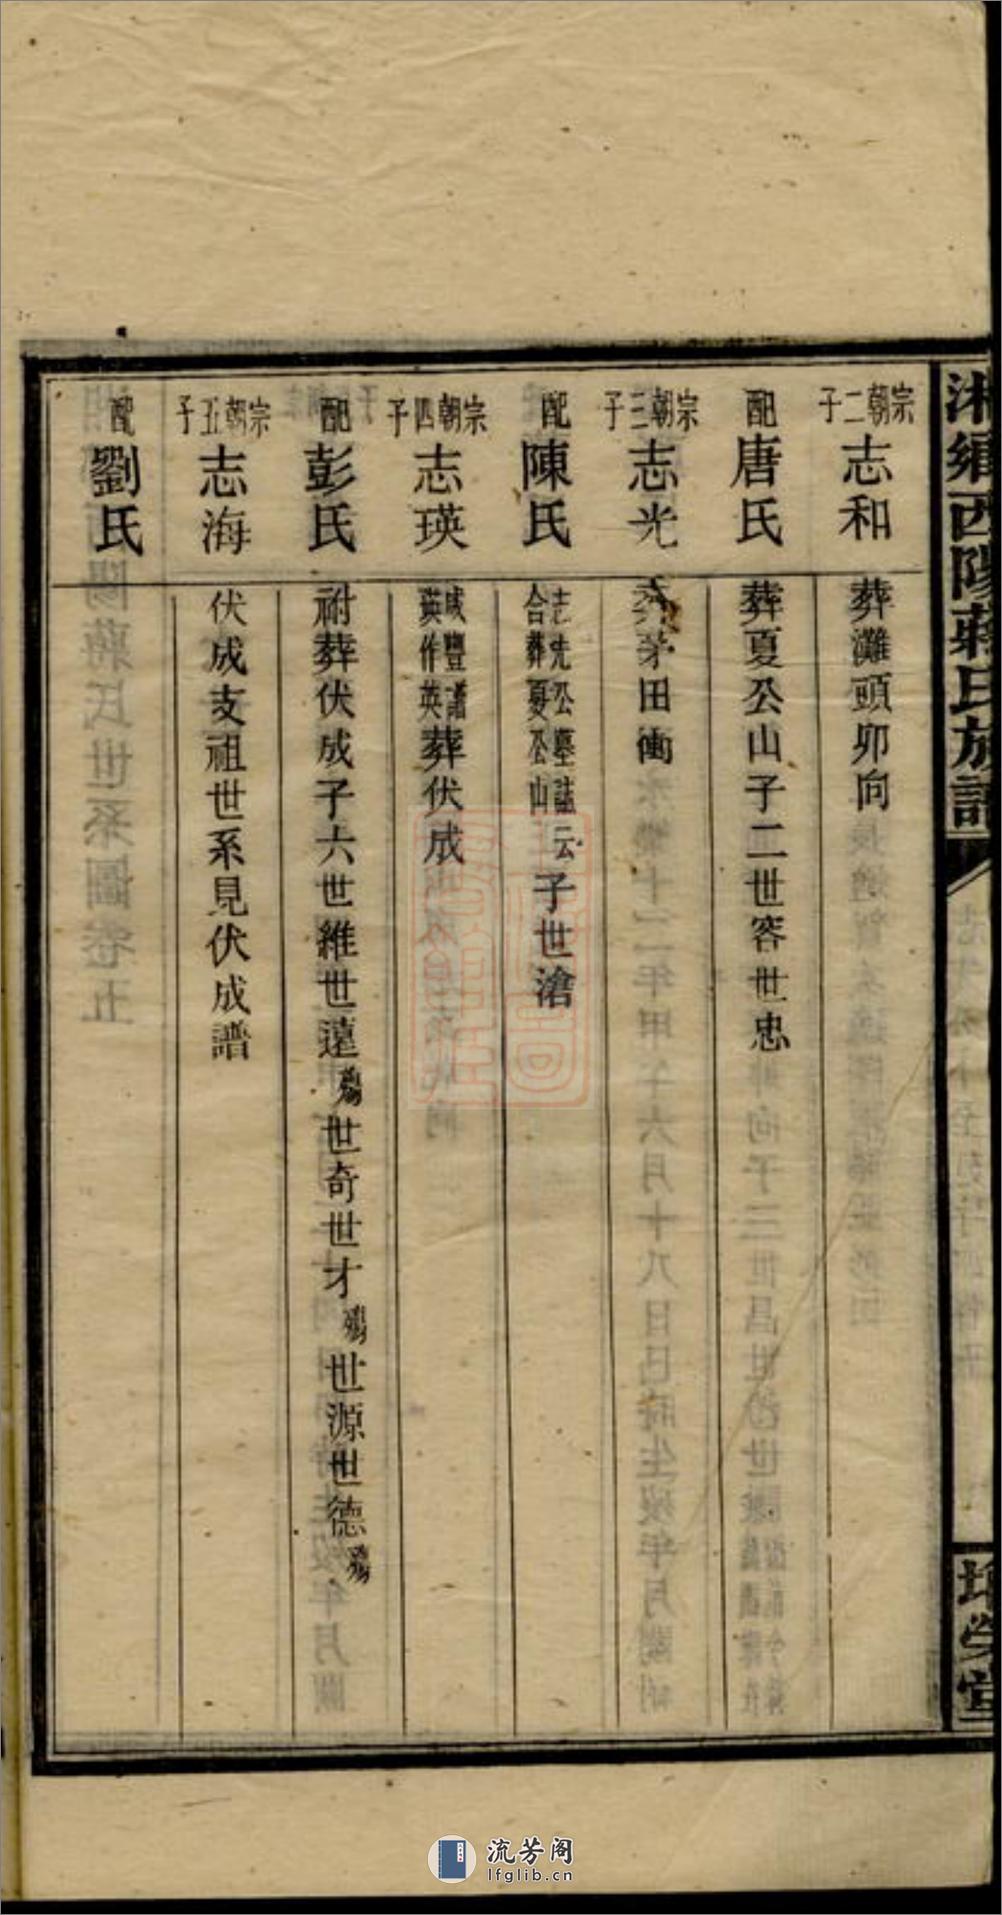 湘鄉西陽蔣氏族譜
宗朝二子 志和 葬灘頭卯向
配 唐氏 葬夏公山子二世容世忠
宗朝三子 志光 葬茅田衝
配 陳氏 志光公墓誌云合葬夏公山 子世滄
宗朝四子 志瑛 咸豐譜瑛作英 葬伏成
配 彭氏 祔葬伏成子六世維世遠殤世奇世才殤世源世德殤
宗朝五子 志海 伏成支祖世系見伏成譜
配 劉氏
流芳阁
lfglib.cn